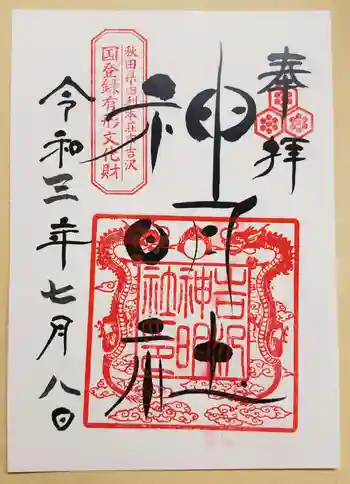 奉拝
神明社
秋田県由利本荘市吉沢
国登録有形文化財
吉沢
神明
令和三年七月八日